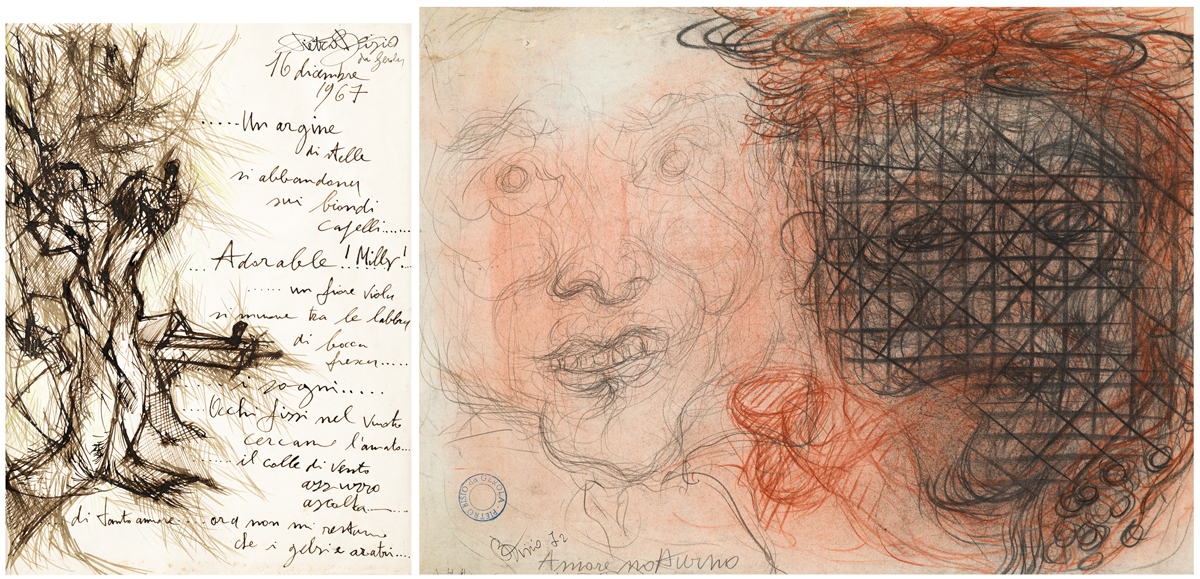 Pietro Bisio
da Gerola
16 dicembre
1967
.....Un argine
di stelle
si abbandona
sui biondi
capelli......
...Adorabile! Milly!
...... un fiore viola
si muove tra le labbra
di bocca
fresca.....
i sogni.....
Occhi fissi nel vuoto
cercano l'amato...
il colle di vento
azzurro
ascolta......
di tanto amore...ora non mi restano
che i gelsi e aratri....
PIETRO BISIO da GEROLA
Bisio 72
Amore notturno